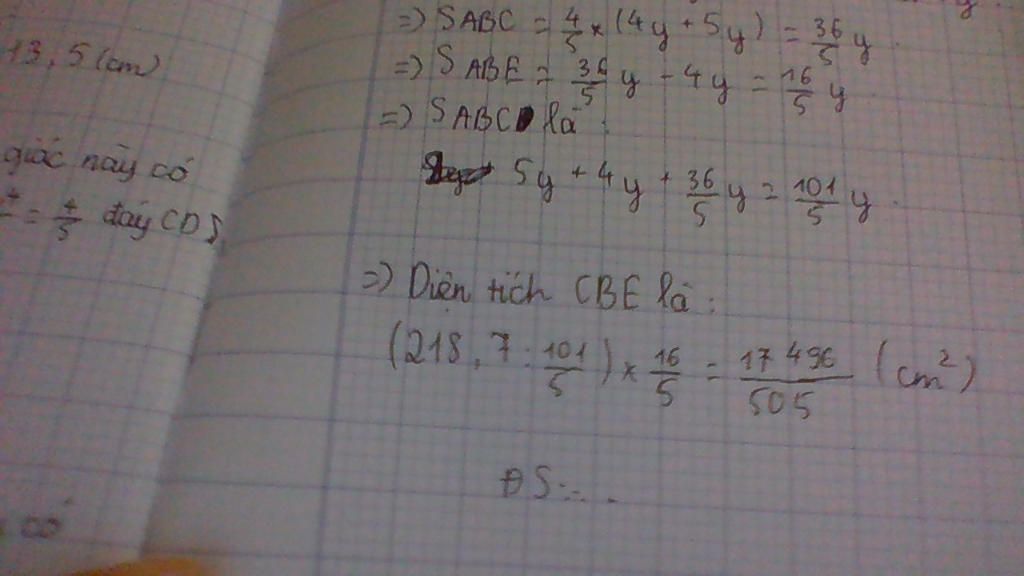 13,5 (cm)
giác này có
= 4/5 đáy CD).
có
=> SABC = 4/5 x (4y + 5y) = 36/5 y.
=> SABE = 36/5 y - 4y = 16/5 y
=> SABCD là :
5y + 4y + 36/5 y = 101/5 y.
=> Diện tích CBE là :
(218,7 : 101/5) x 16/5 = 17 496/505 (cm²)
ĐS:...